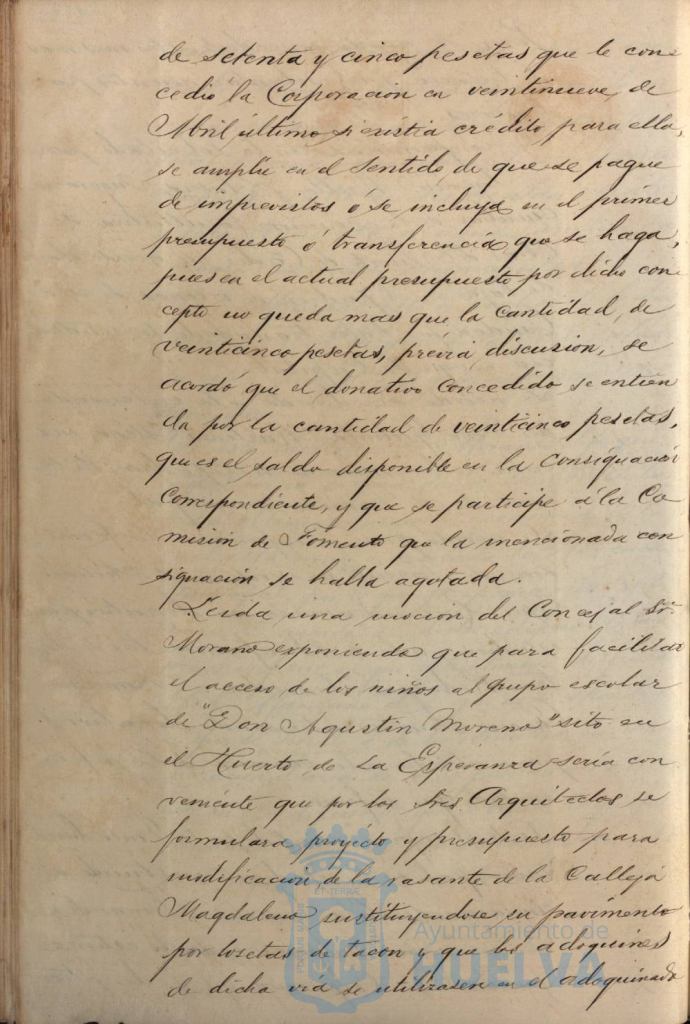 de setenta y cinco pesetas que le con
cedió la Corporación en veintinueve de
Abril último si existia crédito para ello,
se amplíe en el sentido de que se pague
de imprevistos ó se incluya en el primer
presupuesto ó transferencia que se haga,
pues en el actual presupuesto por dicho con
cepto no queda mas que la cantidad, de
veinticinco pesetas, prévia discusion, se
acordó que el donativo concedido se entien
da por la cantidad de veinticinco pesetas,
que es el saldo disponible en la consignación
correspondiente, y que se participe á la Co
misión de Fomento que la mencionada con
signación se halla agotada.
Leida una moción del Concejal Sr.
Moraño exponiendo que para facilitar
el acceso de los niños al grupo escolar
de "Don Agustin Moreno" sito en
el Huerto de La Esperanza sería con
veniente que por los Sres Arquitectos se
formulara proyecto y presupuesto para
modificación de la rasante de la Calleja
Magdalena sustituyendose su pavimento
por losetas de tacon y que los adoquines
de dicha via se utilizasen en el adoquinado
Ayuntamiento de
HUELVA